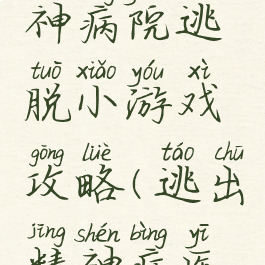 神病院逃
tuō xiǎo yóu xì
脱小游戏
gōng lüè táo chū
攻略(逃出
jīng shén bìng yī
精神病医